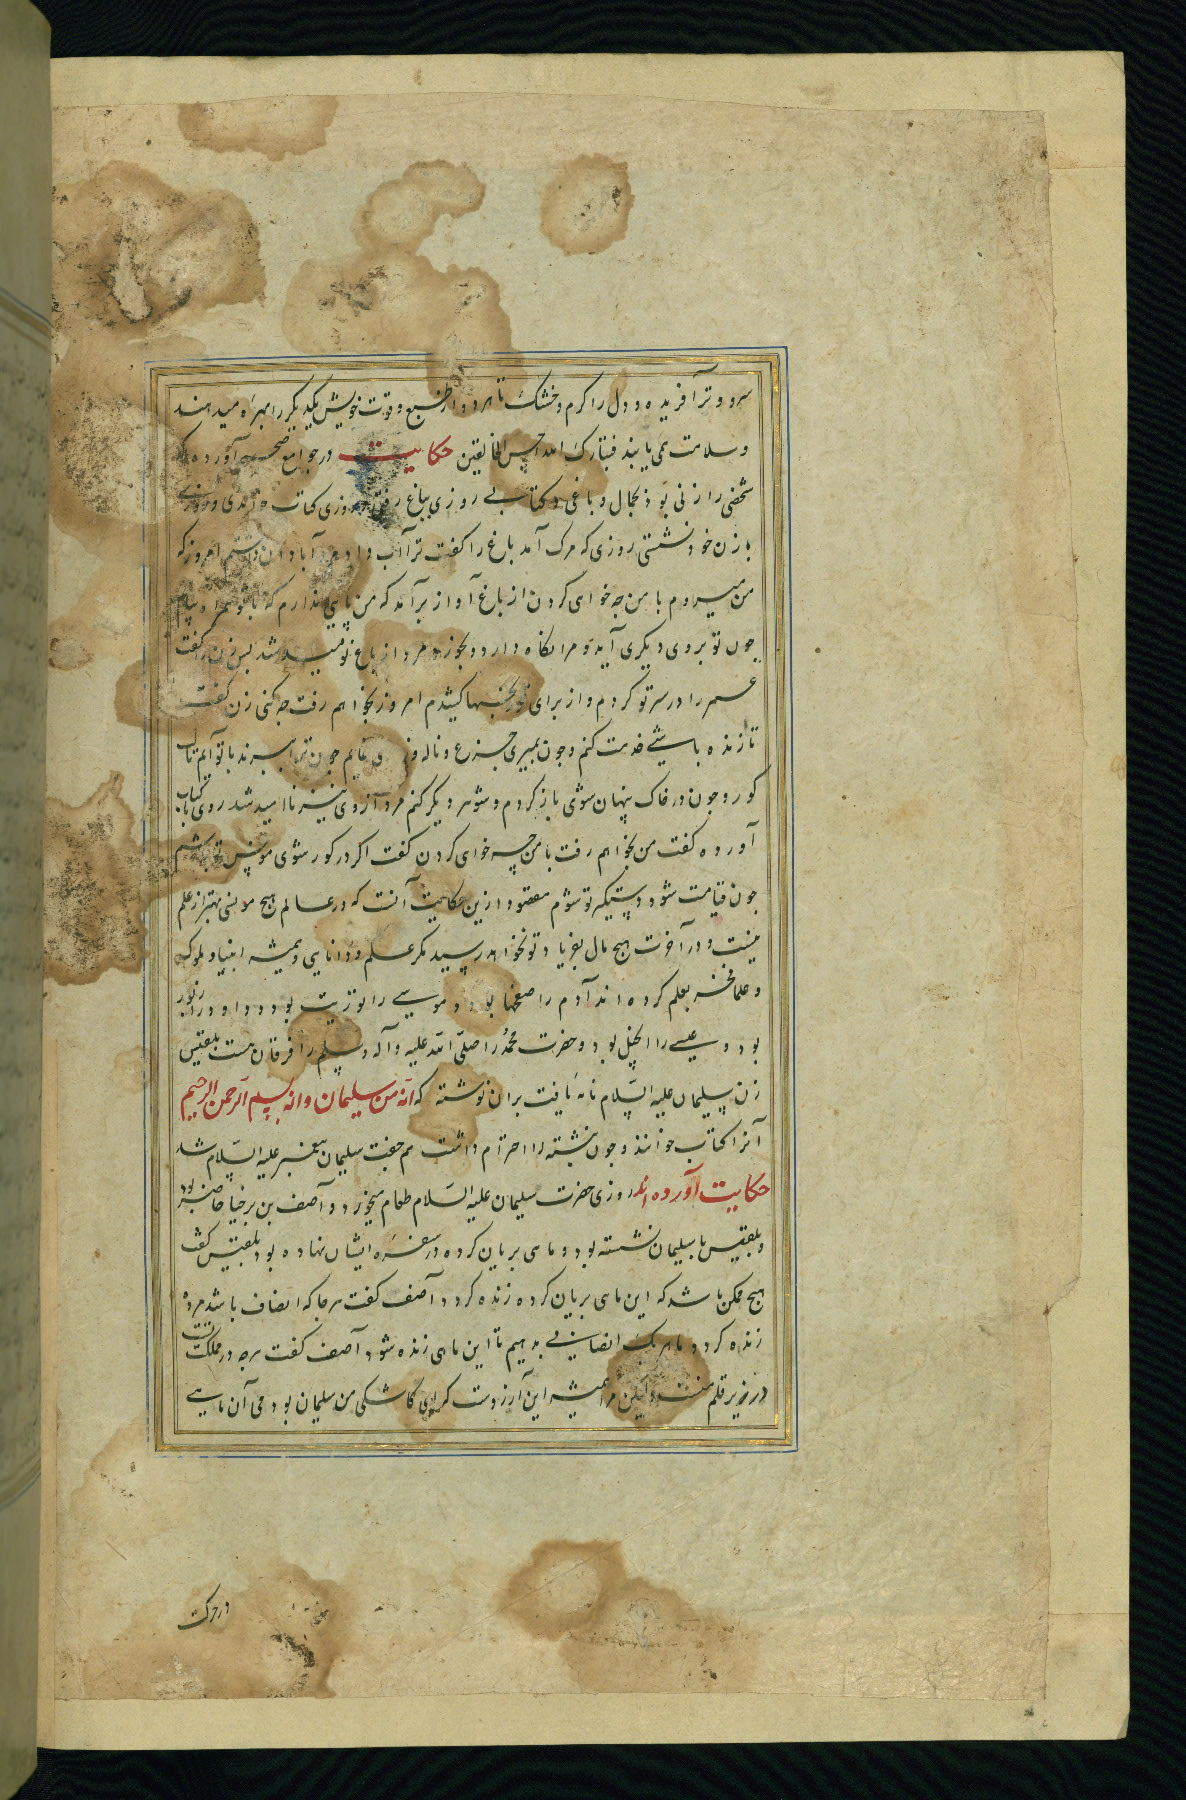 سرد و تر آفریده و دل را گرم و خشک تا هر دو از طبع و قوت خویش یکدیگر را بهره میدهند
و سلامت می یابند فتبارک الله احسن الخالقین حکایت در جوامع آورده که
شخصی را زنی بود بجمال و باغی و کتابی روزی بباغ رفتی و روزی کتاب خواندی و روزی
با زن خود نشستی روزی که مرگ آمد باغ را گفت ترا آب دادم و آبادان داشتم امروز که
من میروم با من چه خواهی کردن از باغ آواز برآمد که من پای ندارم که با تو همراه بیایم
چون تو بروی دیگری آید و مرا نگاه دارد و بخورد مرد از باغ نومید شد پس زن را گفت
عمر را در سر تو کردم و از برای تو رنجها کشیدم امروز بخواهم رفت چه کنی زن گفت
تا زنده باشی خدمت کنم و چون بمیری جزع و ناله و نمایم چون ترا ببرند با تو آیم تا لب
گور و چون در خاک پنهان شوی بازگردم و شوهر دیگر کنم مرد از وی نیز ناامید شد روی با کتاب
آورده گفت من بخواهم رفت با من چه خواهی کردن گفت اگر در گور شوی مونس تو باشم
چون قیامت شود دستگیر تو شوم مقصود ازین حکایت آنست که در عالم هیچ مونسی بهتر از علم
نیست و در آخرت هیچ مال بفریاد تو نخواهد رسید مگر علم و دانایی و همیشه انبیا و ملوک
و علما فخر بعلم کرده اند آدم را صحفها بود و موسی را توریت بود و داود را زبور
بود و عیسی را انجیل بود و حضرت محمد را صلی الله علیه و آله و سلم را فرقان هست بلقیس
زن سلیمان علیه السلام نامه یافت بران نوشته که انه من سلیمان و انه بسم الله الرحمن الرحیم
آنرا کتاب خوانند و چون نبشته را احترام داشت هم جفت سلیمان پیغمبر علیه السلام شد
حکایت آورده اند روزی حضرت سلیمان علیه السلام طعام میخورد و آصف بن برخیا حاضر بود
و بلقیس با سلیمان نشسته بود و ماهی بریان کرده در سفره ایشان نهاده بود بلقیس گفت
هیچ ممکن باشد که این ماهی بریان کرده زنده گردد آصف گفت هر جا که انصاف باشد مرده
زنده گردد ما هر یک انصافی بدهیم تا این ماهی زنده شود آصف گفت هر چه در مملکت تست
در زیر قلم منست ولیکن مرا همیشه این آرزوست که ای کاشکی من سلیمان بودمی آن ماهی
در حرکت